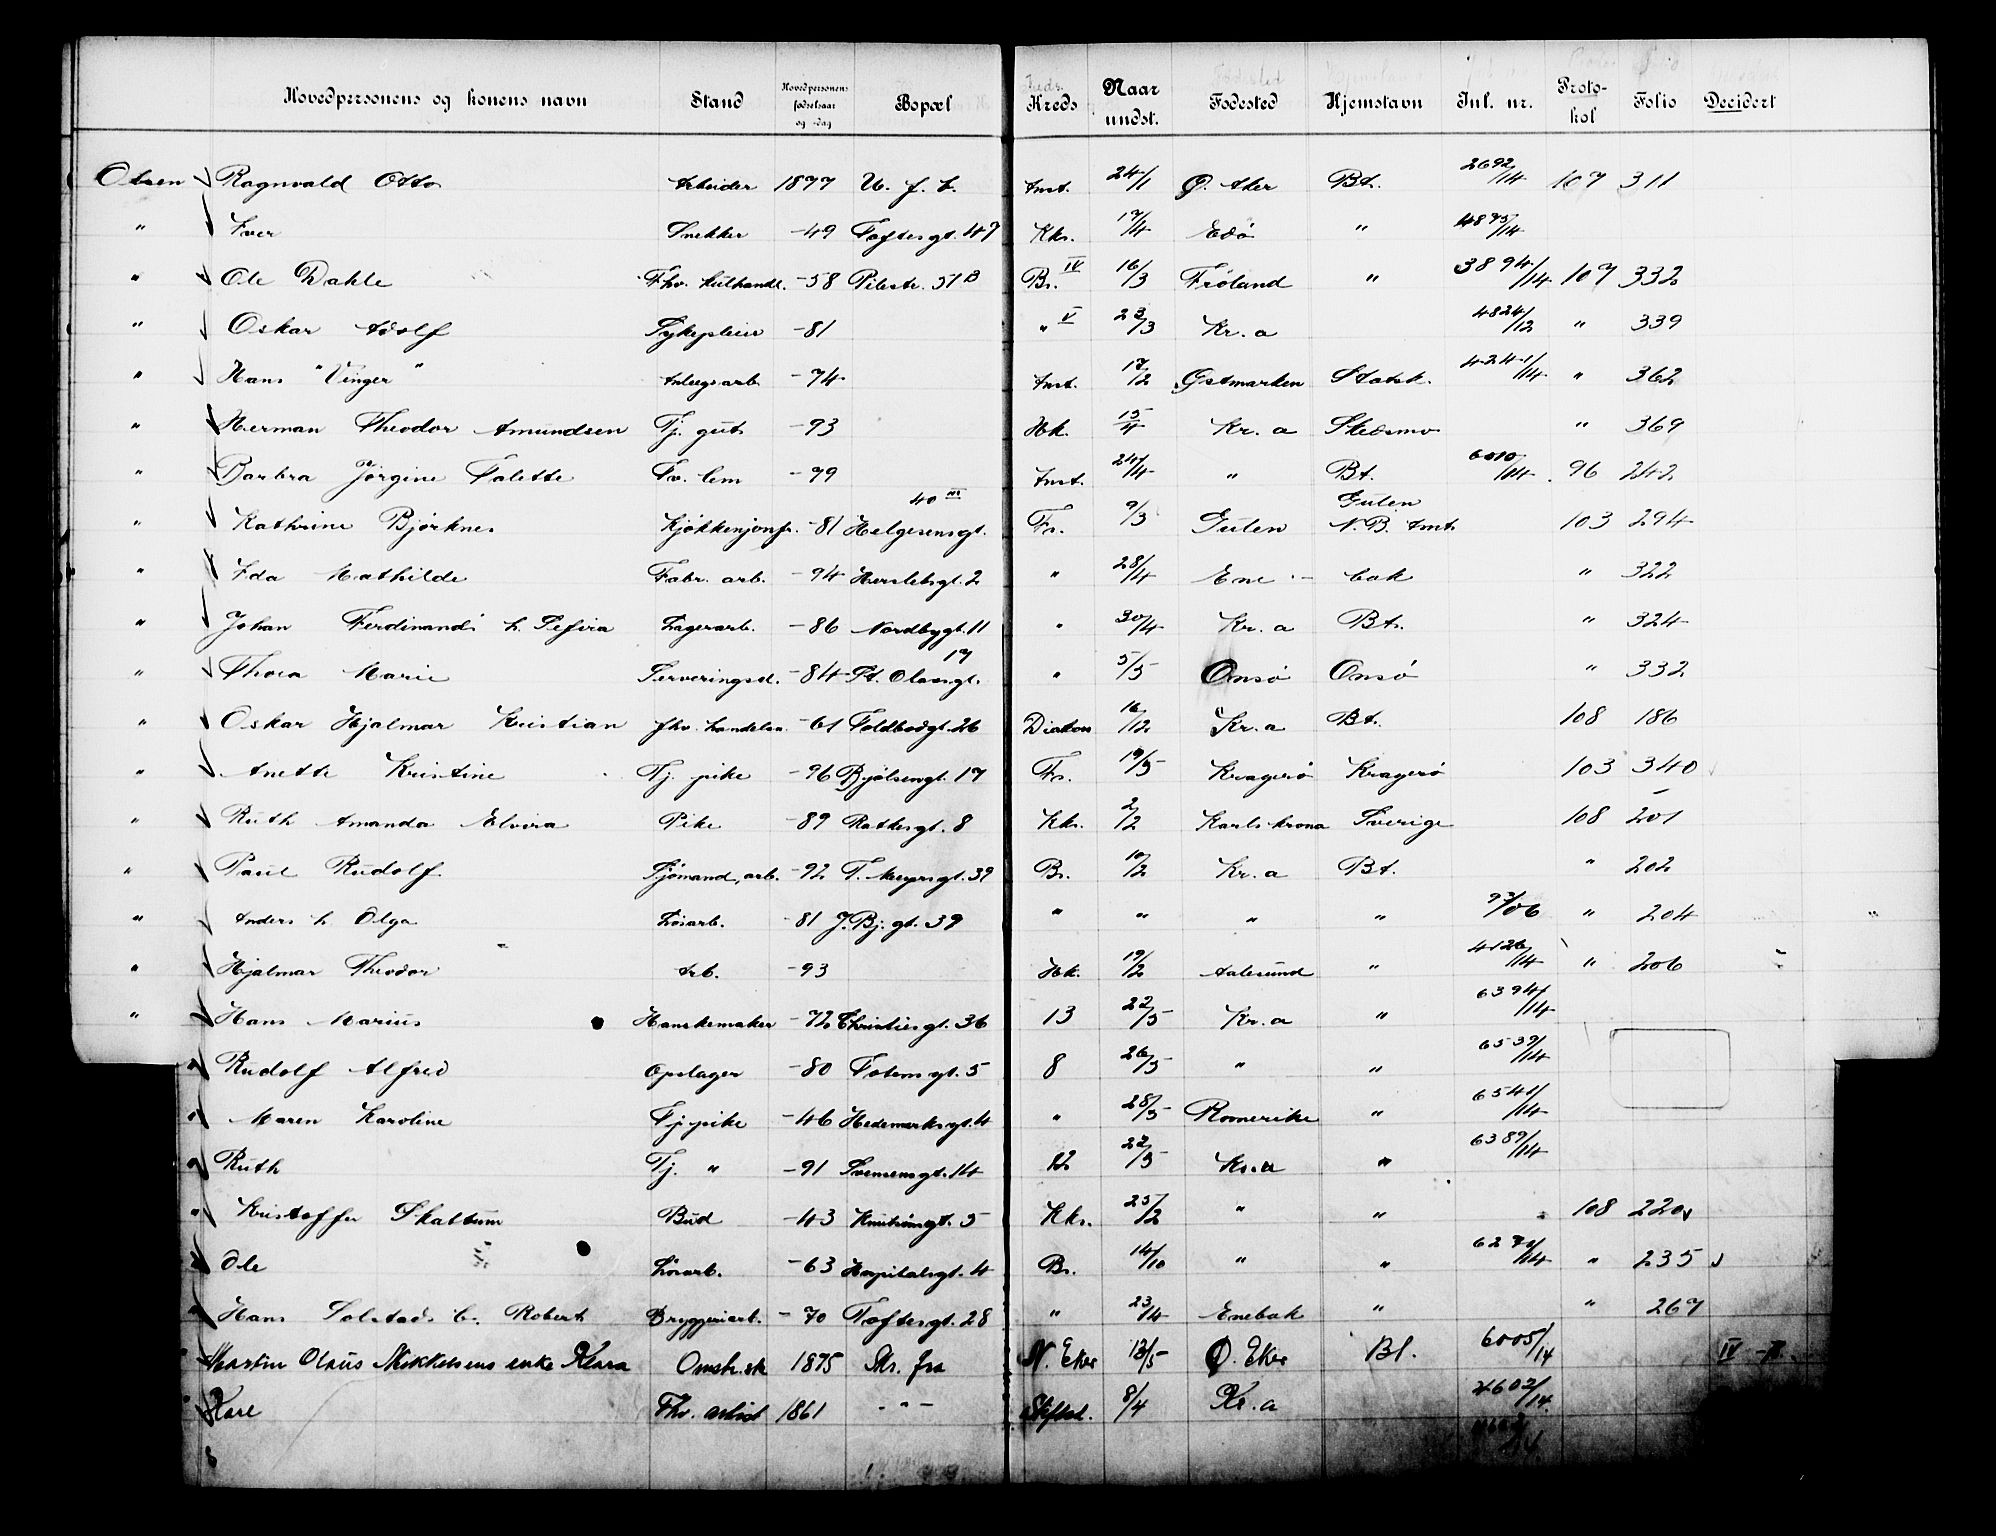 Hovedpersonens og konens navn Stand Hovedpersonens fødselsaar og -dag Bopæl Kreds Naar undst. Fødested Hjemstavn Jnl. nr. Protokol Folio Decidert
Olsen Ragnvald Otto Arbeider 1877 U. f. b. Amt. 24/1 Ø. Aker Bt. 2692/14 107 311
" Iver Snekker -49 Toftesgt. 47 Kks. 17/4 Edø " 4875/14
" Ole Dahle Fhv. kulhandl. -58 Pilestr. 57B Br. IV 16/3 Frøland " 3894/14 107 332
" Oskar Adolf Sykepleier -81 " V 23/3 Kr.a 4824/12 " 339
" Hans "Vinger" Anlegsarb. -74 Amt. 17/2 Østmarken Statsk. 4241/14 " 362
" Herman Theodor Amundsen Tj. gut -93 Hk. 15/4 Kr.a Skedsmo " 369
" Barbra Jørgine Talette Fv. lem -79 Amt. 24/4 " Bt. 6010/14 96 242
" Kathrine Bjørknes Kjøkkenjomfr. -81 Helgesensgt. 40 III Fr. 9/3 Gulen Gulen N.B. Amt 103 294
" Ida Mathilde Fabr. arb. -94 Herslebsgt. 2 " 28/4 Ene - bak " 322
" Johan Ferdinand h. Sefira Lagerarb. -86 Nordbygt. 11 " 30/4 Kr.a Bt. " 324
" Thora Marie Serveringsd. -84 St. Olavsgt. 17 " 5/5 Onsø Onsø " 332
" Oskar Hjalmar Kristian fhv. handelsr. -61 Toldbodgt. 26 Diakon 16/12 Kr.a Bt. 108 186
" Anette Kristine Tj. pike -96 Bjølsengt. 17 Fr. 19/5 Kragerø Kragerø 103 340
" Ruth Amanda Elvira Pike -89 Rathkesgt. 8 Kks. 2/2 Karlskrona Sverige 108 201
" Paul Rudolf Sjømand, arb. -92 T. Meyersgt. 39 Br. 10/2 Kr.a Bt. " 202
" Anders h. Olga Løsarb. -81 J. Bj. gt. 39 " " " " 93/06 " 204
" Hjalmar Theodor Arb. -93 Hk. 19/2 Aalesund " 4126/14 " 206
" Hans Marius Hanskemaker -72 Christiesgt. 36 13 22/5 Kr.a " 6394/14
" Rudolf Alfred Opslager -80 Totensgt. 5 8 26/5 " " 6539/14
" Maren Karoline Tj. pike -46 Hedemarksgt. 4 " 28/5 Romerike " 6541/14
" Ruth Tj. " -91 Svensensgt. 14 12 22/5 Kr.a " 6389/14
" Kristoffer Skattum Bud -43 5 Kks. 25/2 " " 108 220
" Ole Løsarb. -63 Hospitalsgt. 4 Br. 14/10 " " 6271/14 " 235
" Hans Solstad b. Robert Bryggeriarb. -70 Toftesgt. 28 " 23/4 Enebak " " 267
" Martin Olaus Mikkelsens enke Klara Omstr. sk 1875 Skr. fra N. Eker 13/5 Ø. Eker Bl. 6005/14 IV - II
" Karl Fhv. artist 1861 - " - Stiftel. 8/4 Kr.a 4602/14